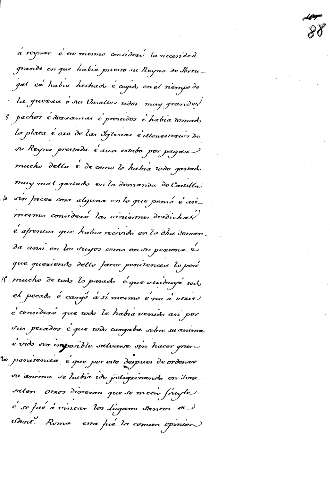 88
á reynar é asi mesmo consideró la necesidad
grande en que habia puesto su Reyno de Portu-
gal cá habia hechado é cogido en el tiempo de
la guerra á sus vasallos todos muy grandes
5 pechos é derramas é prestidos é habia tomado
la plata é oro de las Iglesias é Monesterios de
su Reyno prestada é aun estaba por pagar
mucho dello é de como lo habia todo gastado
muy mal gastado en la demanda de Castilla
10 sin facer cosa alguna en lo que pensó é asi
mesmo consideró las verguenzas desdichas
é afrentas que habia recivido en la dha deman-
da ansi en los suyos como en su persona é
que queriendo dello facer penitencia le pesó
15 mucho de todo lo pasado é que
el pecado é cargo á sí mesmo é que á veces
é consideró que todo le habia venido asi por
sus pecados é que todo cargaba sobre su anima
é vido ser imposible salvarse sin hacer gran
20 penitencia é que por esto despues de ordenar
su anima se habia ido pelegrinando en
otros dixeron que se metió frayle
é se fué á visitar los lugares Santos á
Roma esta fué la comun opinion